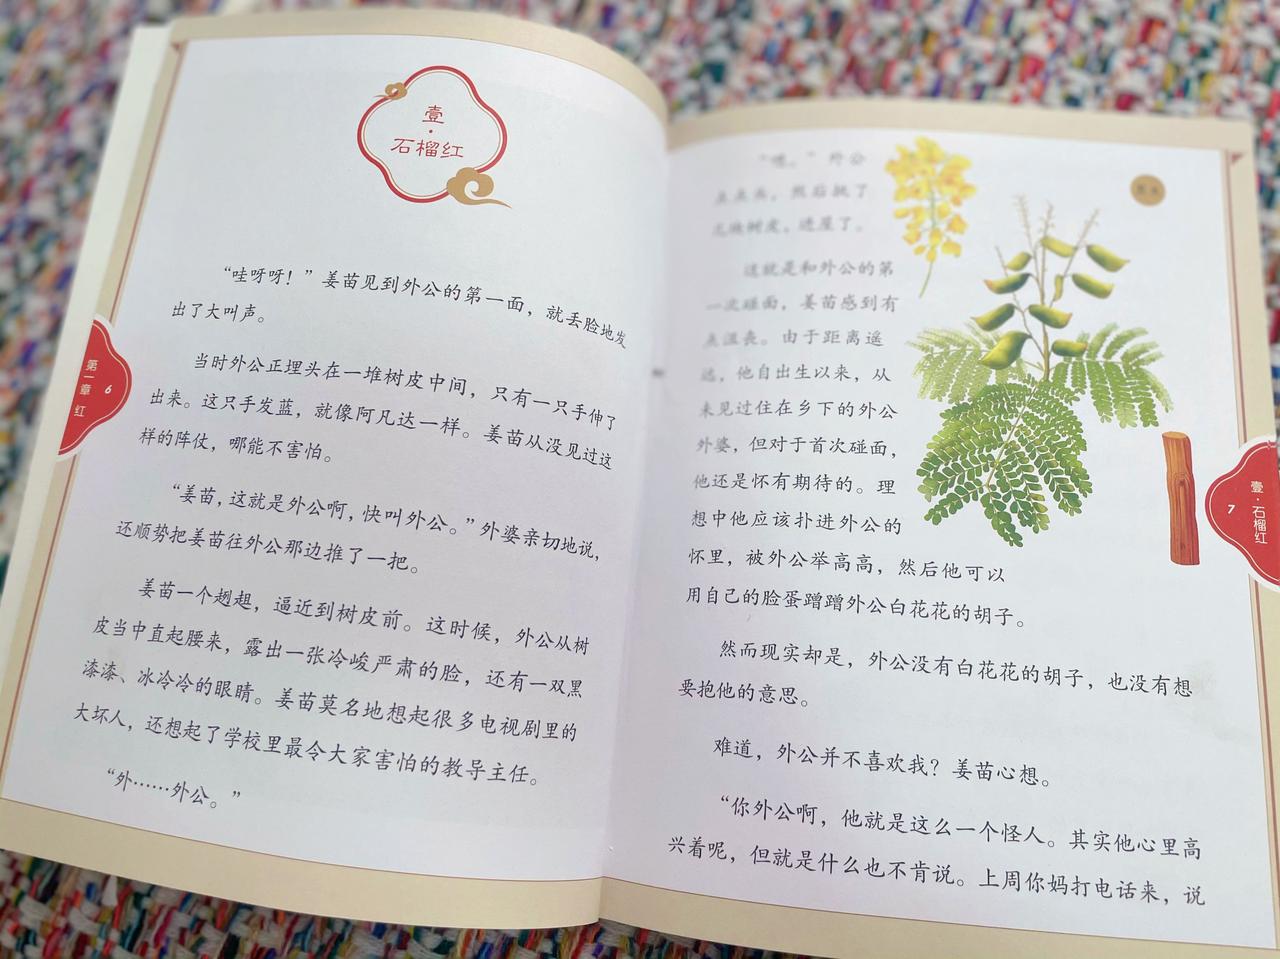 壹·
石榴红
“哇呀呀！”姜苗见到外公的第一面，就丢脸地发
出了大叫声。
当时外公正埋头在一堆树皮中间，只有一只手伸了
出来。这只手发蓝，就像阿凡达一样。姜苗从没见过这
样的阵仗，哪能不害怕。
“姜苗，这就是外公啊，快叫外公。”外婆亲切地说，
还顺势把姜苗往外公那边推了一把。
姜苗一个趔趄，逼近到树皮前。这时候，外公从树
皮当中直起腰来，露出一张冷峻严肃的脸，还有一双黑
漆漆、冰冷冷的眼睛。姜苗莫名地想起很多电视剧里的
大坏人，还想起了学校里最令大家害怕的教导主任。
“外……外公。”
第一章 红
6
“嗯。”外公
点点头，然后挑了
几块树皮，进屋了。
这就是和外公的第
一次碰面，姜苗感到有
点沮丧。由于距离遥
远，他自出生以来，从
未见过住在乡下的外公
外婆，但对于首次碰面，
他还是怀有期待的。理
想中他应该扑进外公的
怀里，被外公举高高，然后他可以
用自己的脸蛋蹭蹭外公白花花的胡子。
然而现实却是，外公没有白花花的胡子，也没有想
要抱他的意思。
难道，外公并不喜欢我？姜苗心想。
“你外公啊，他就是这么一个怪人。其实他心里高
兴着呢，但就是什么也不肯说。上周你妈打电话来，说
壹·石榴红
7